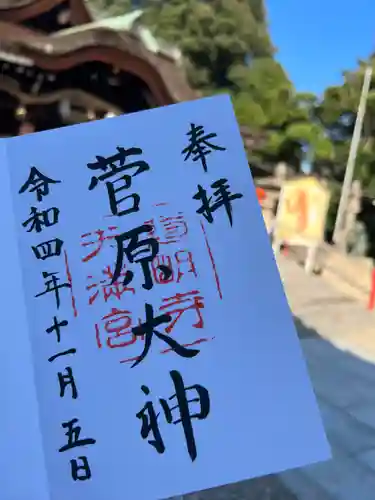 奉拝
菅原大神
道明寺
天満宮
令和四年十一月五日